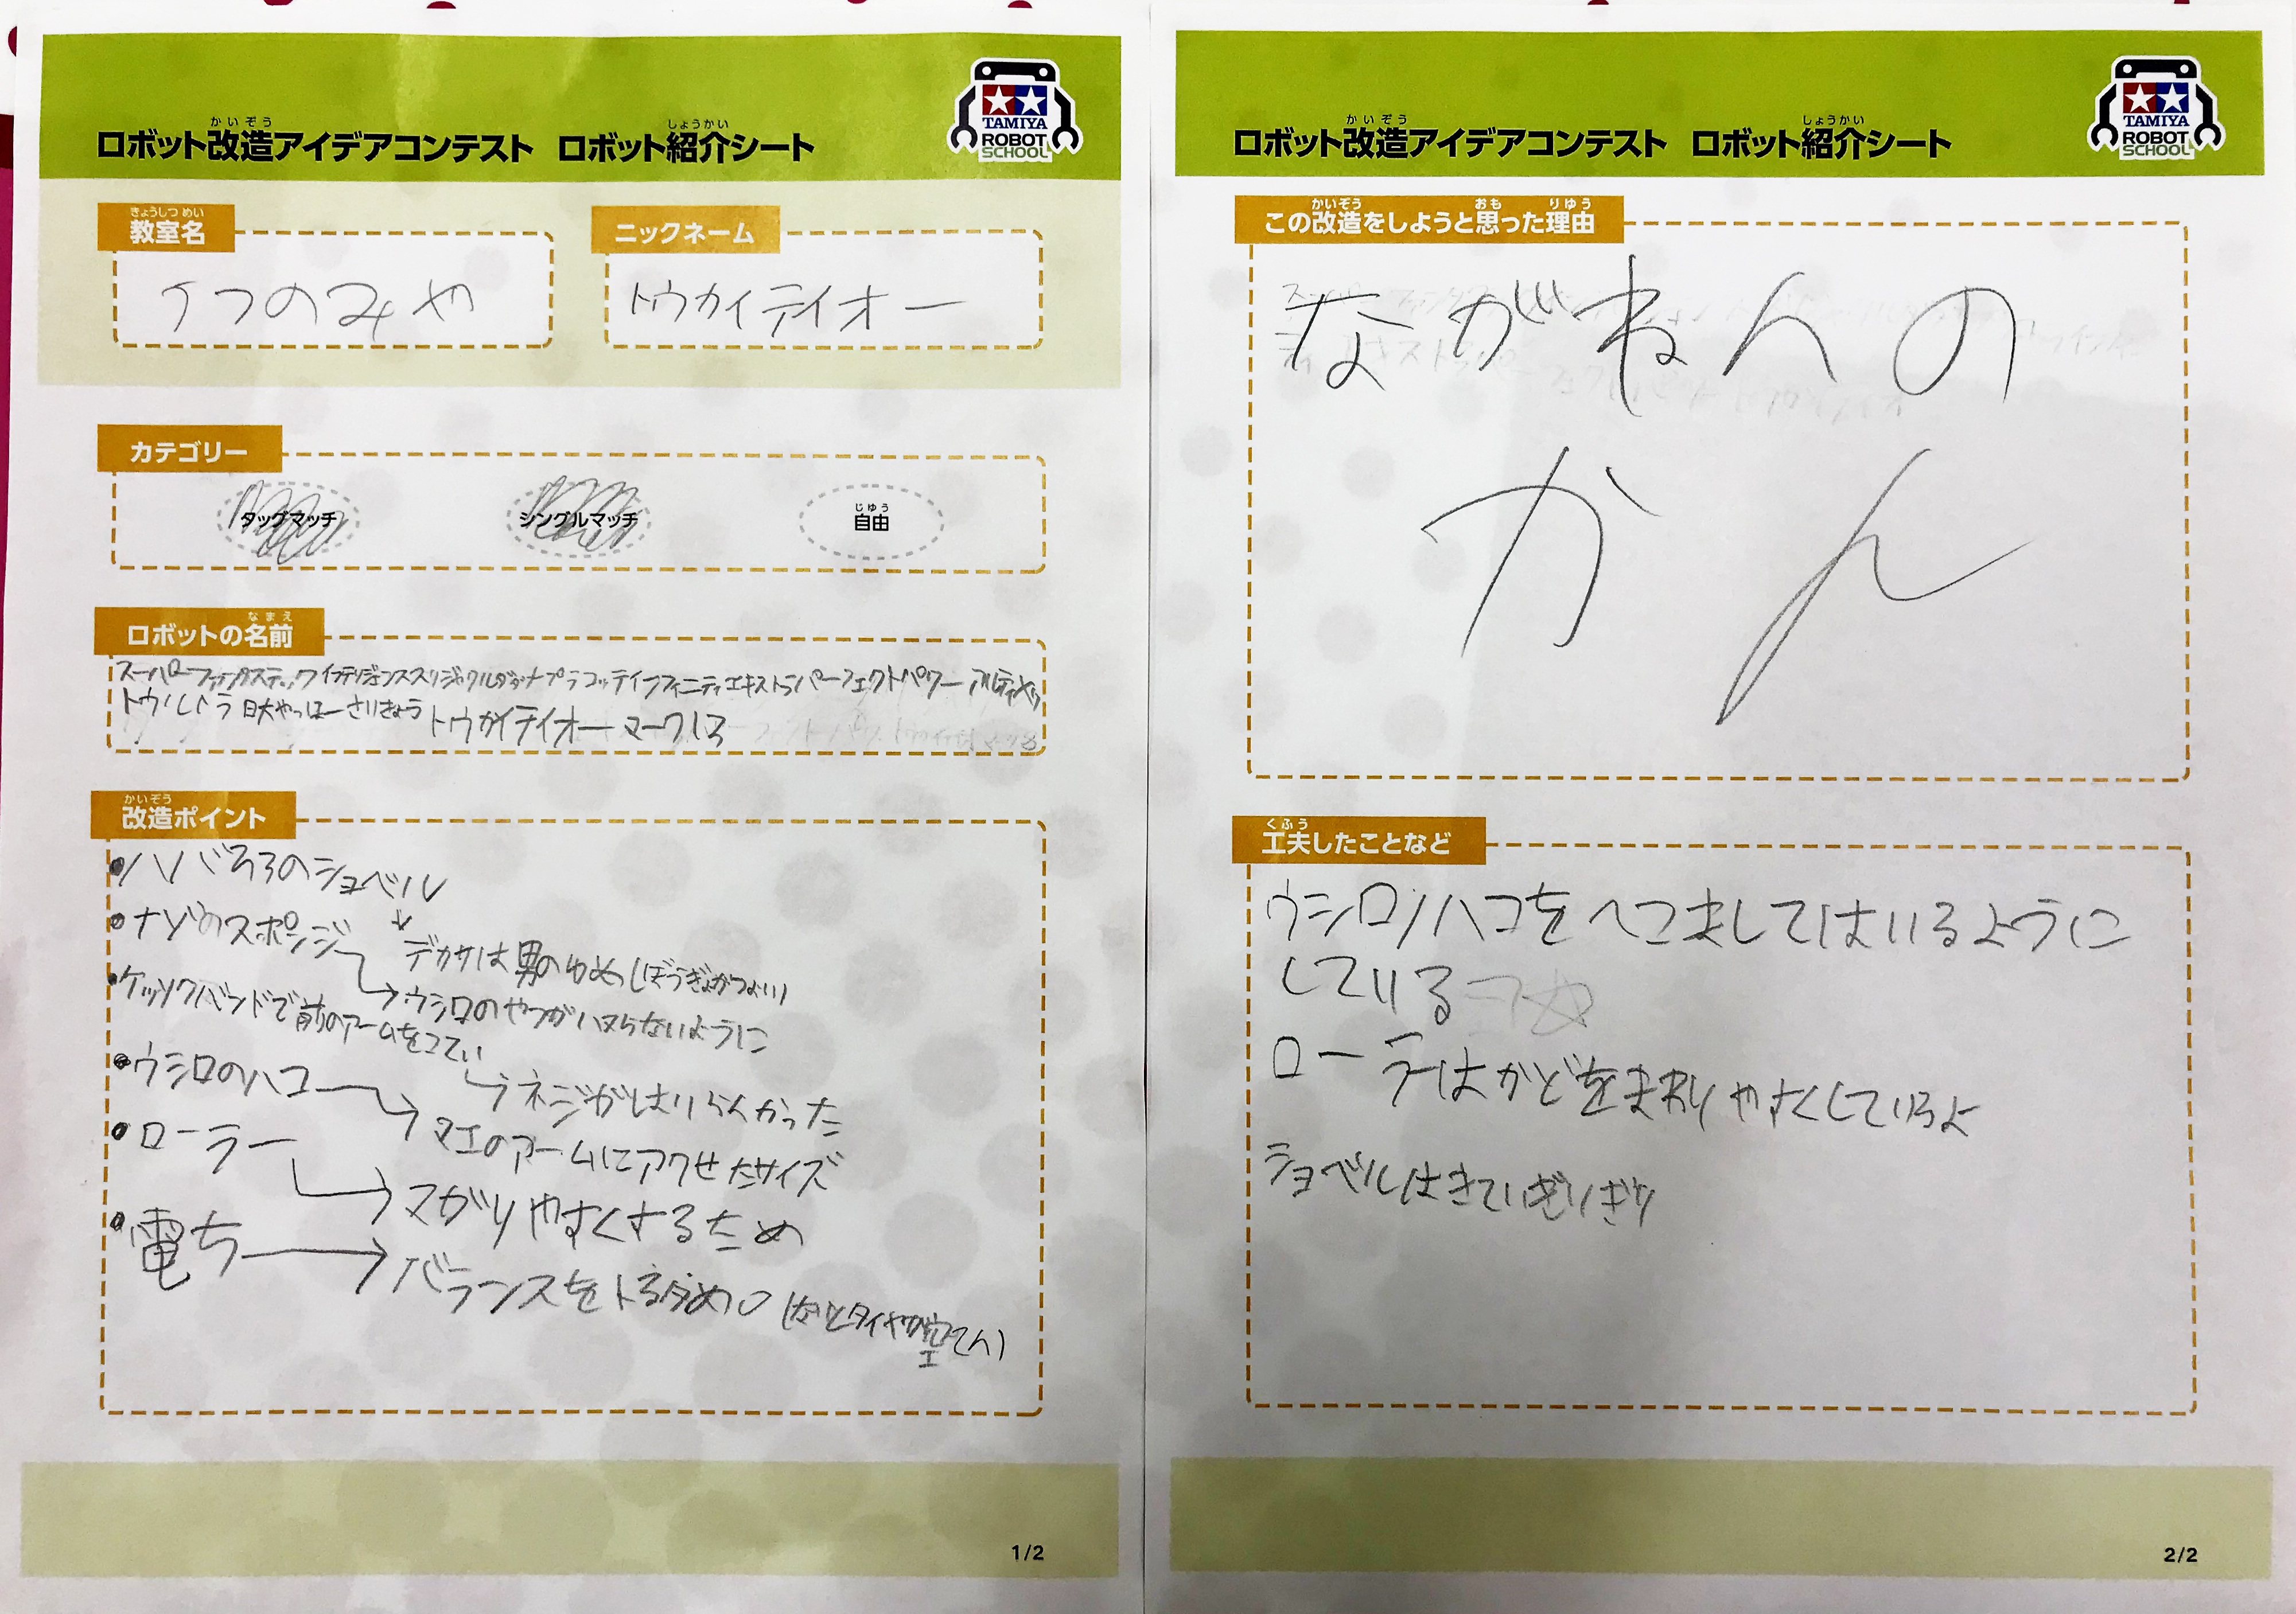 かいぞう しょうかい
ロボット改造アイデアコンテスト ロボット紹介シート
TAMIYA
ROBOT
SCHOOL
きょうしつ めい
教室名
うつのみや
ニックネーム
トウカイテイオー
カテゴリー
タッグマッチ
シングルマッチ
じゆう
自由
なまえ
ロボットの名前
スーパーファンタスティック
インフィニティエキストラパーフェクトパワー
トウルトラ
やっほーさいきょう
トウカイテイオーマーク13
かいぞう
改造ポイント
ハバ33のショベル
デカサは男のゆめ(ぼうぎょがつよい)
ナゾのスポンジ
ウシロのやつがハマらないように
ケッソクバンドで前のアームをこてい
ネジがはいらくかった
ウシロのハコ
マエのアームにアワせたサイズ
ローラー
マがりやすくするため
電ち
バランスをトるダめ
1/2
かいぞう しょうかい
ロボット改造アイデアコンテスト ロボット紹介シート
TAMIYA
ROBOT
SCHOOL
かいぞう おも りゆう
この改造をしようと思った理由
ながねんの
かん
くふう
工夫したことなど
ウシロノハコをへこましてはいるように
している
ローラーはかどをまわりやすくしているよ
ショベルはきていぎりぎり
2/2